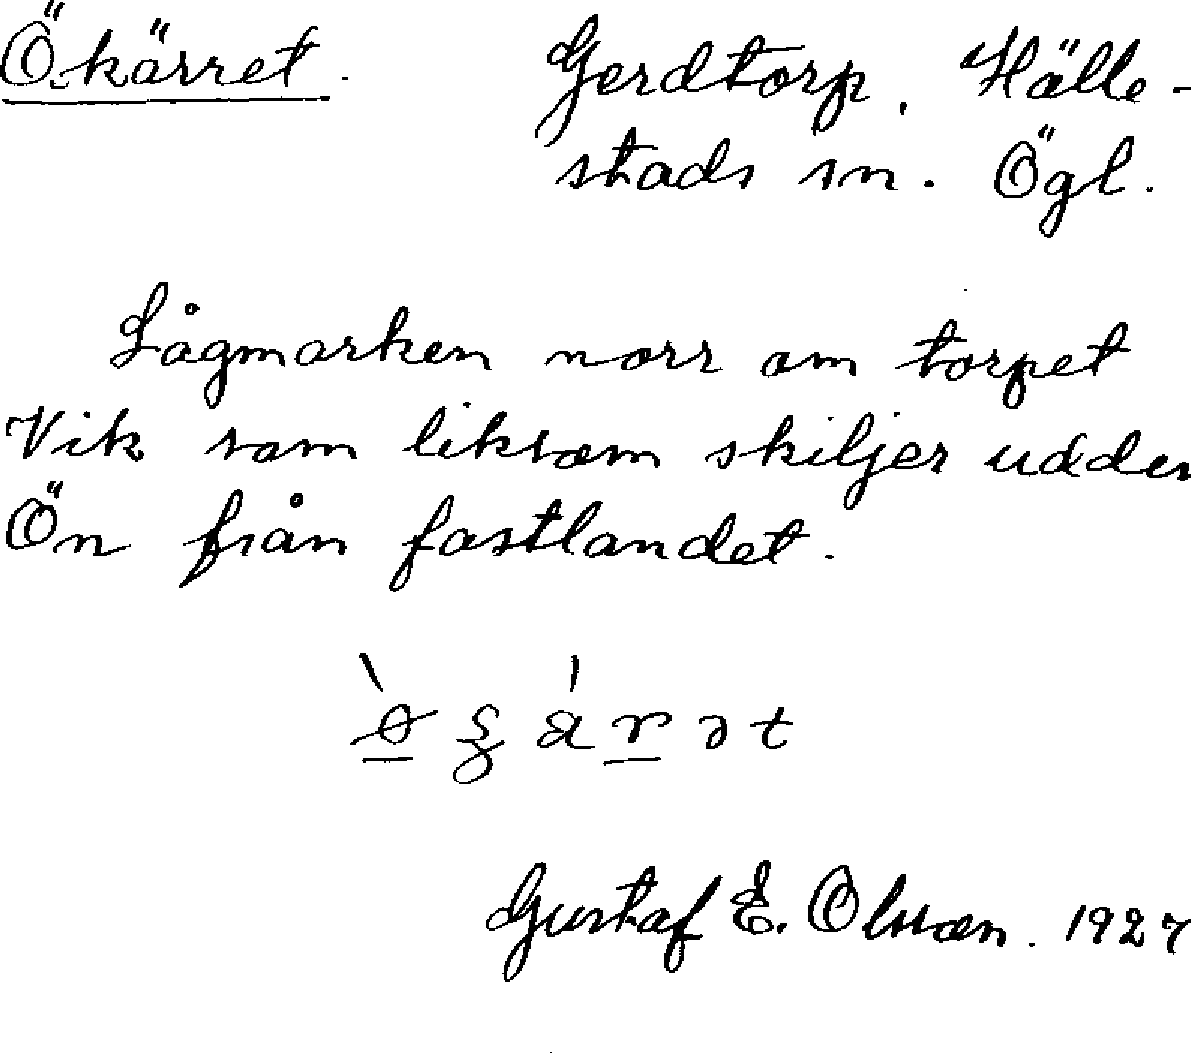 Ökärret. Gerdtorp, Hälle-
stads sn. Ögl.
Lågmarken norr om torpet
Vik som liksom skiljer udden
Ön från fastlandet.
Gustaf E. Olsson. 1927